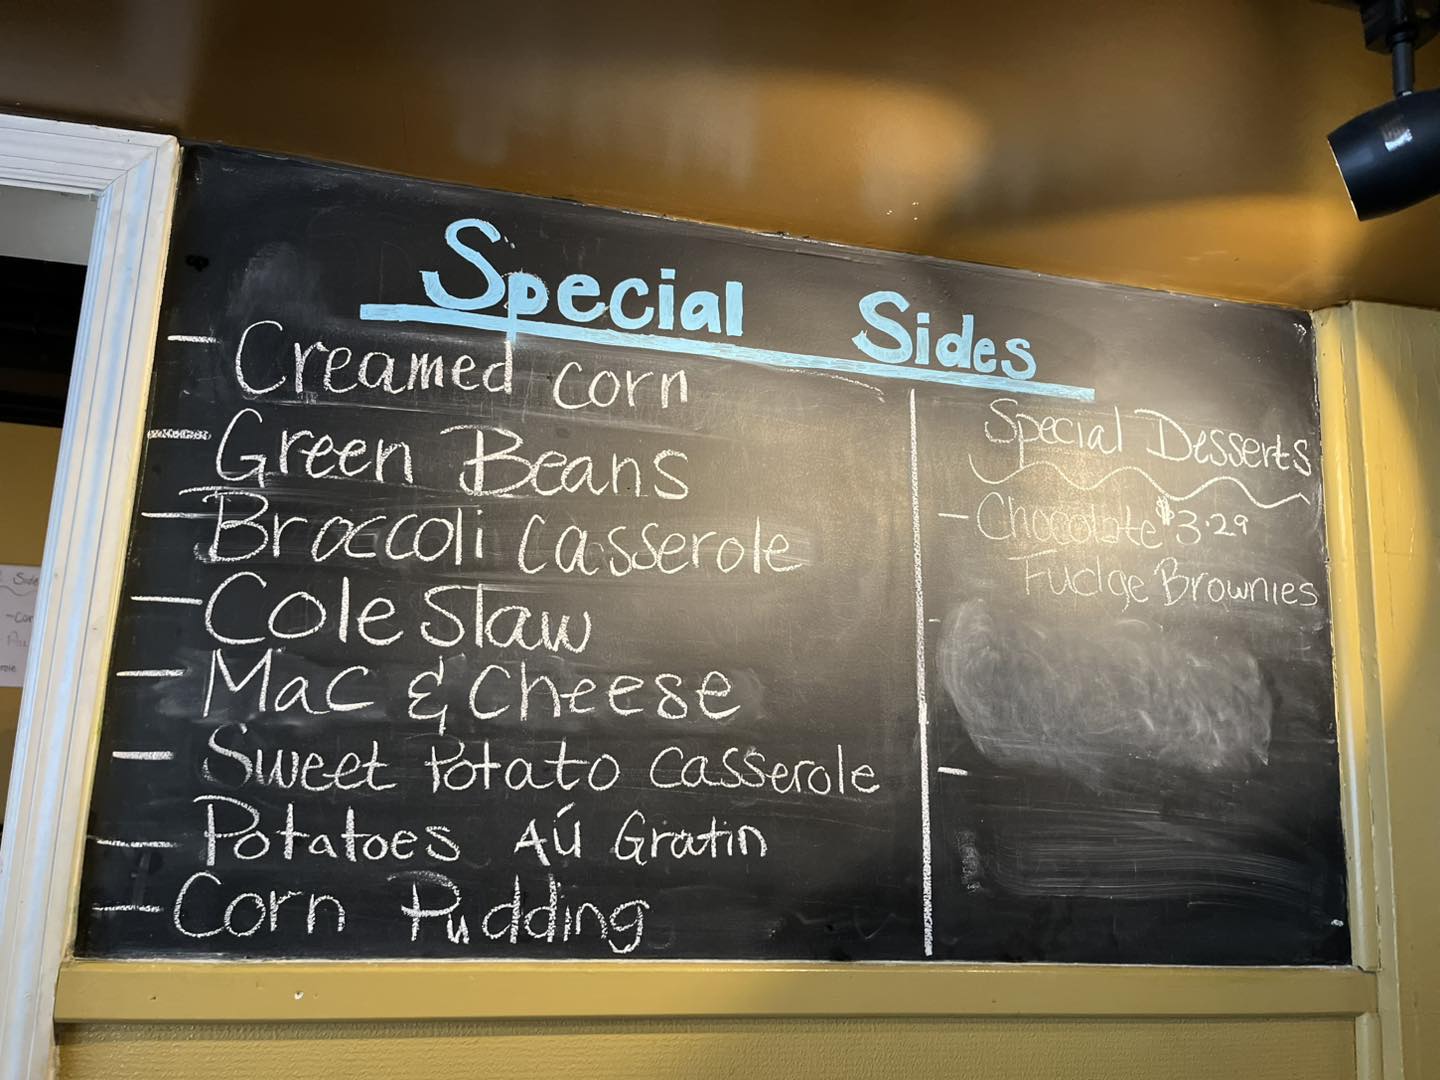 Special Sides
- Creamed corn
- Green Beans
- Broccoli Casserole
- Cole Slaw
- Mac & Cheese
- Sweet Potato Casserole
- Potatoes Aú Gratin
- Corn Pudding
Special Desserts
- Chocolate $3.29
Fudge Brownies
-
-